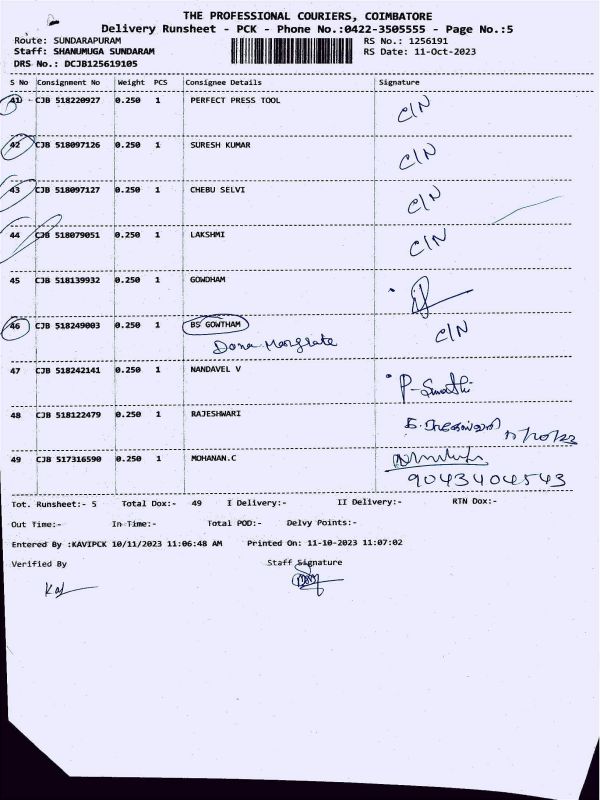 THE PROFESSIONAL COURIERS, COIMBATORE
Delivery Runsheet - PCK - Phone No.:0422-3505555 - Page No.:5
Route: SUNDARAPURAM RS No.: 1256191
Staff: SHANUMUGA SUNDARAM RS Date: 11-Oct-2023
DRS No.: DCJB125619105
S No Consignment No Weight PCS Consignee Details Signature
41 CJB 518220927 0.250 1 PERFECT PRESS TOOL C/N
42 CJB 518097126 0.250 1 SURESH KUMAR C/N
43 CJB 518097127 0.250 1 CHEBU SELVI C/N
44 CJB 518079051 0.250 1 LAKSHMI C/N
45 CJB 518139932 0.250 1 GOWDHAM
46 CJB 518249003 0.250 1 BS GOWTHAM C/N
Dona Margrate
47 CJB 518242141 0.250 1 NANDAVEL V P-Swathi
48 CJB 518122479 0.250 1 RAJESHWARI
49 CJB 517316590 0.250 1 MOHANAN.C
9043404543
Tot. Runsheet:- 5 Total Dox:- 49 I Delivery:- II Delivery:- RTN Dox:-
Out Time:- In Time:- Total POD:- Delvy Points:-
Entered By :KAVIPCK 10/11/2023 11:06:48 AM Printed On: 11-10-2023 11:07:02
Verified By Staff Signature